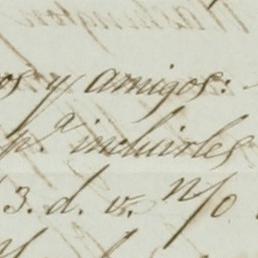 os y amigos:
pª incluirles
3. d. v. n/o